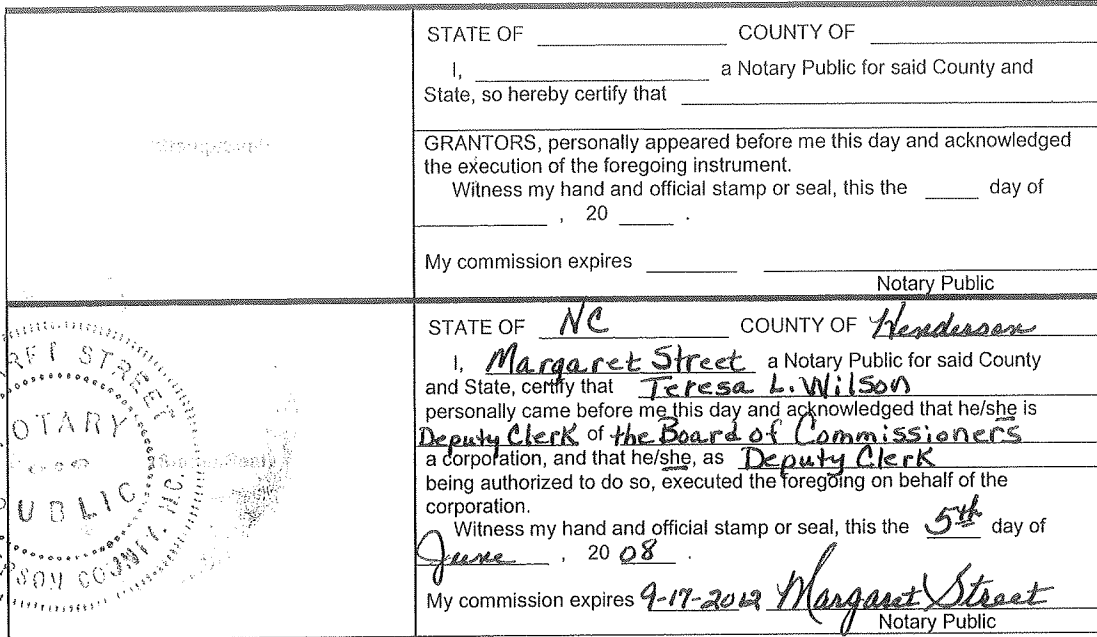 STATE OF ____________ COUNTY OF ____________
I, ____________ a Notary Public for said County and
State, so hereby certify that ____________
GRANTORS, personally appeared before me this day and acknowledged
the execution of the foregoing instrument.
Witness my hand and official stamp or seal, this the _____ day of
__________ , 20 _____ .
My commission expires ________ ____________
Notary Public
STATE OF NC COUNTY OF Henderson
I, Margaret Street a Notary Public for said County
and State, certify that Teresa L. Wilson
personally came before me this day and acknowledged that he/she is
Deputy Clerk of the Board of Commissioners
a corporation, and that he/she, as Deputy Clerk
being authorized to do so, executed the foregoing on behalf of the
corporation.
Witness my hand and official stamp or seal, this the 5th day of
June , 20 08 .
My commission expires 9-17-2012 Margaret Street
Notary Public
STREET
OTARY
UBLIC
COUNTY, NC